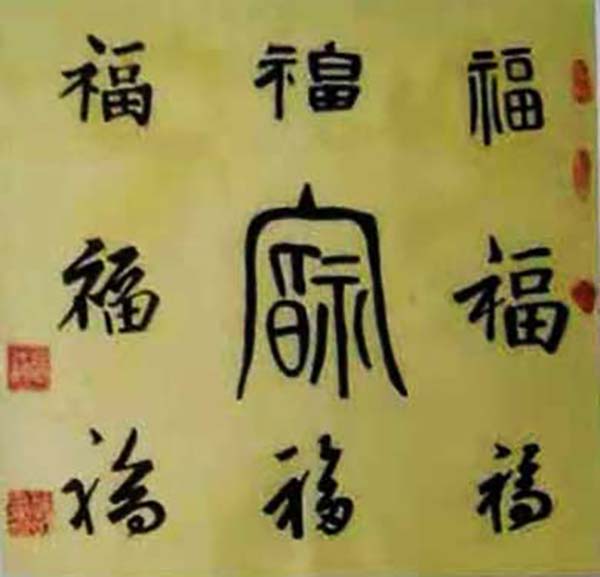 福 福 福
福 福 福
福 福 福